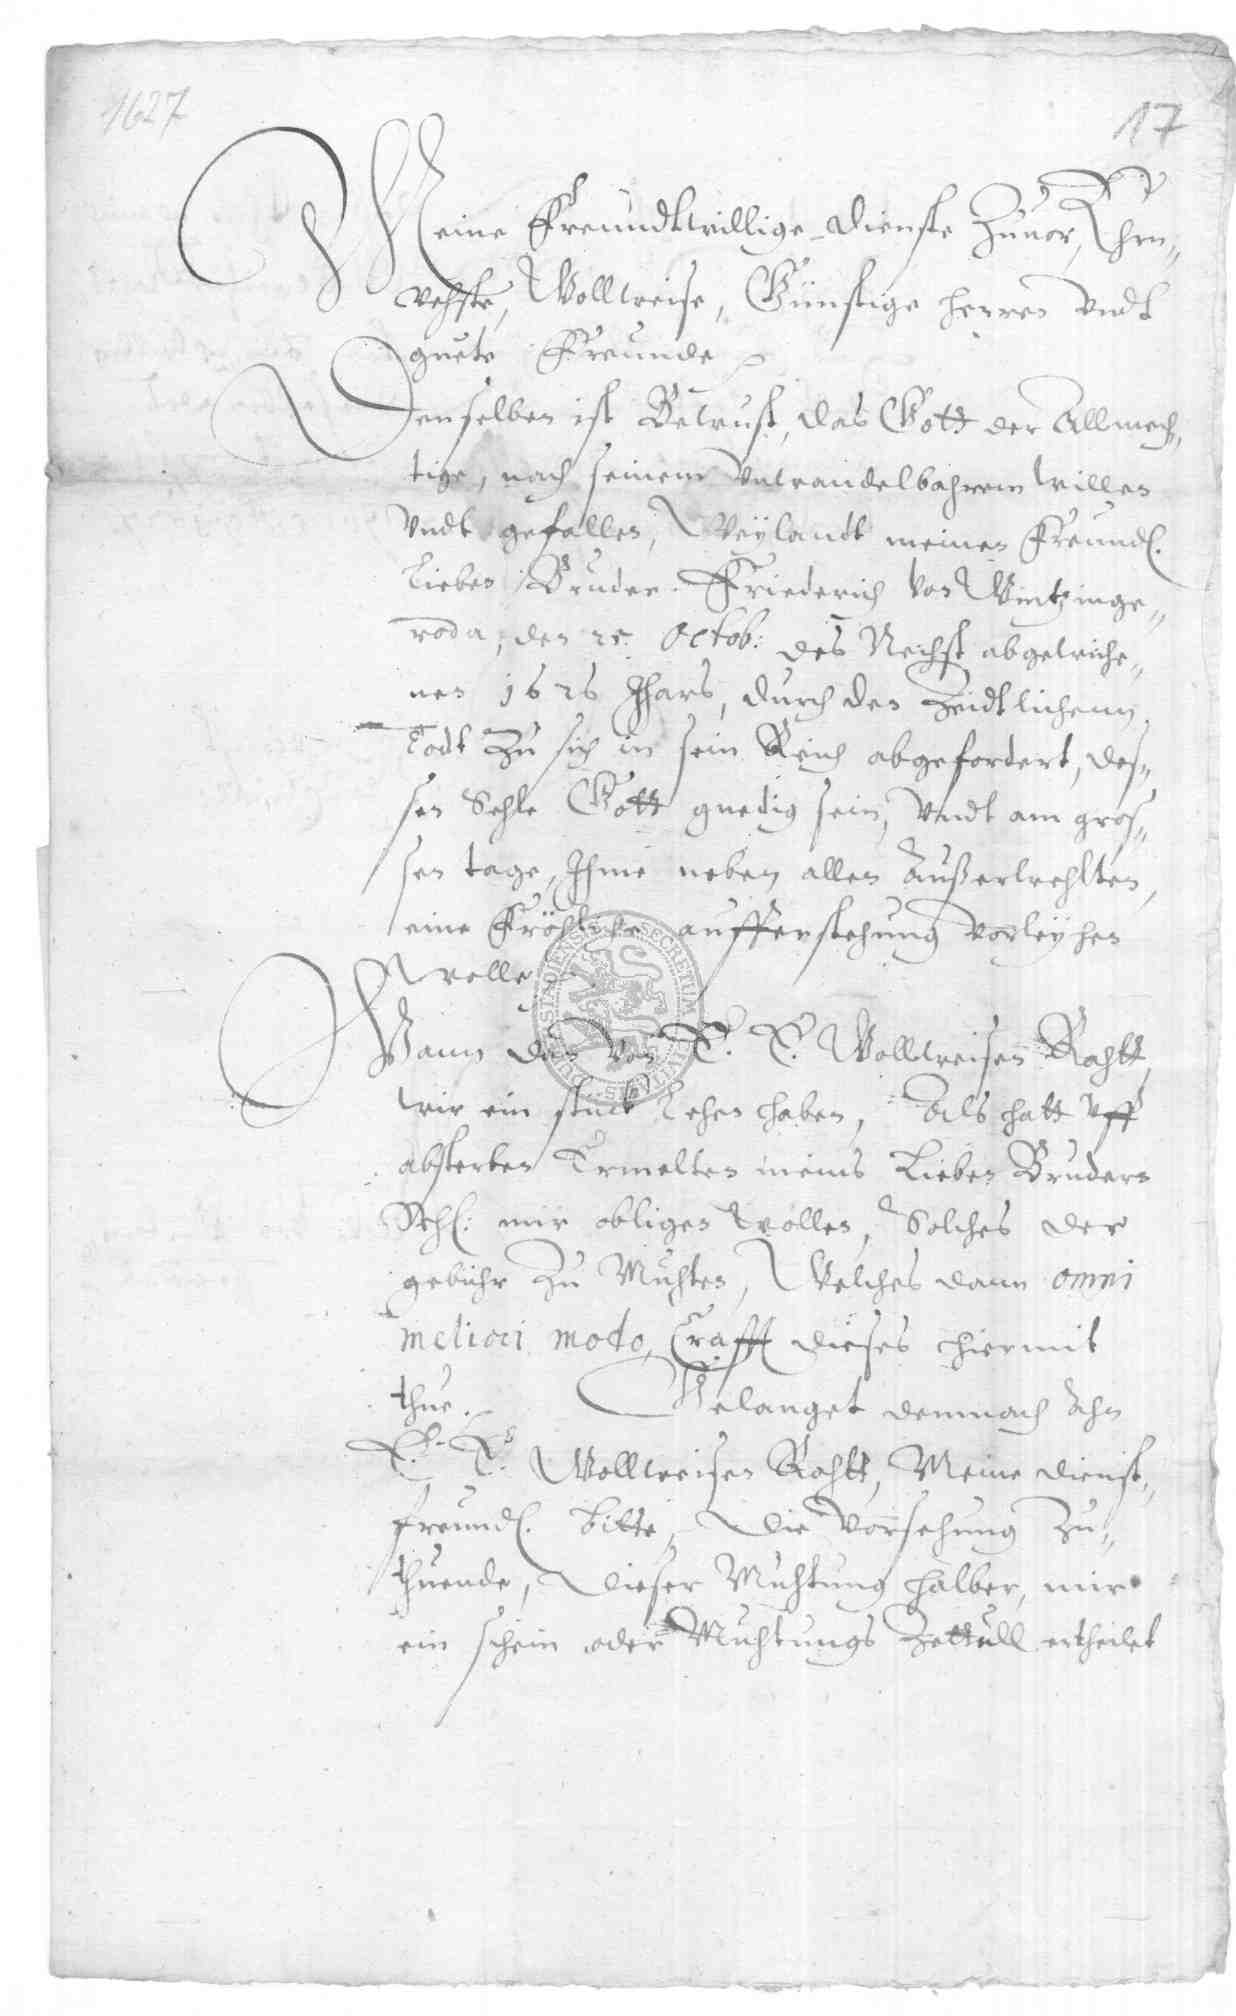 1627
17
Meine Freundtwillige Dienste Zuuor, Ehrn„
vehste, Wollweise, Günstige herren Vndt
guete Freunde
Denselben ist Bewust, das Gott der Allmech„
tige, nach seinem Vnwandelbahrem willen
Vndt gefallen, Weylandt meinen Freundl.
Lieben Bruder Friederich von Wintzinge„
roda, den 25. Octob: des Nechst abgewiche„
nen 1626 Jhars, durch den Zeidtlichenn
Todt Zu sich in sein Reich abgefordert, des„
sen Sehle Gott gnedig sein, Vndt am gros„
sen tage, Ihme neben allen Außerwehlten,
eine Fröhliche aufferstehung vorleyhen
wolle
Wann dan von E. E. Wollweisen Rahtt,
wir ein stuck Lehen haben, Als hatt Vff
absterben Ermelten meins Lieben Bruders
Sehl: mir obligen wollen, Solches der
gebuhr Zu Muhten, Welches dann omni
meliori modo, Crafft dieses hiermit
thue. Gelanget demnach Ahn
E. E. Wollweisen Rahtt, Meine dienst„
freundl. bitte, die Vorsehung Zu„
thuende, dieser Muhtung halber, mir
ein schein oder Muhtungs Zettull ertheilet
SECRETUM